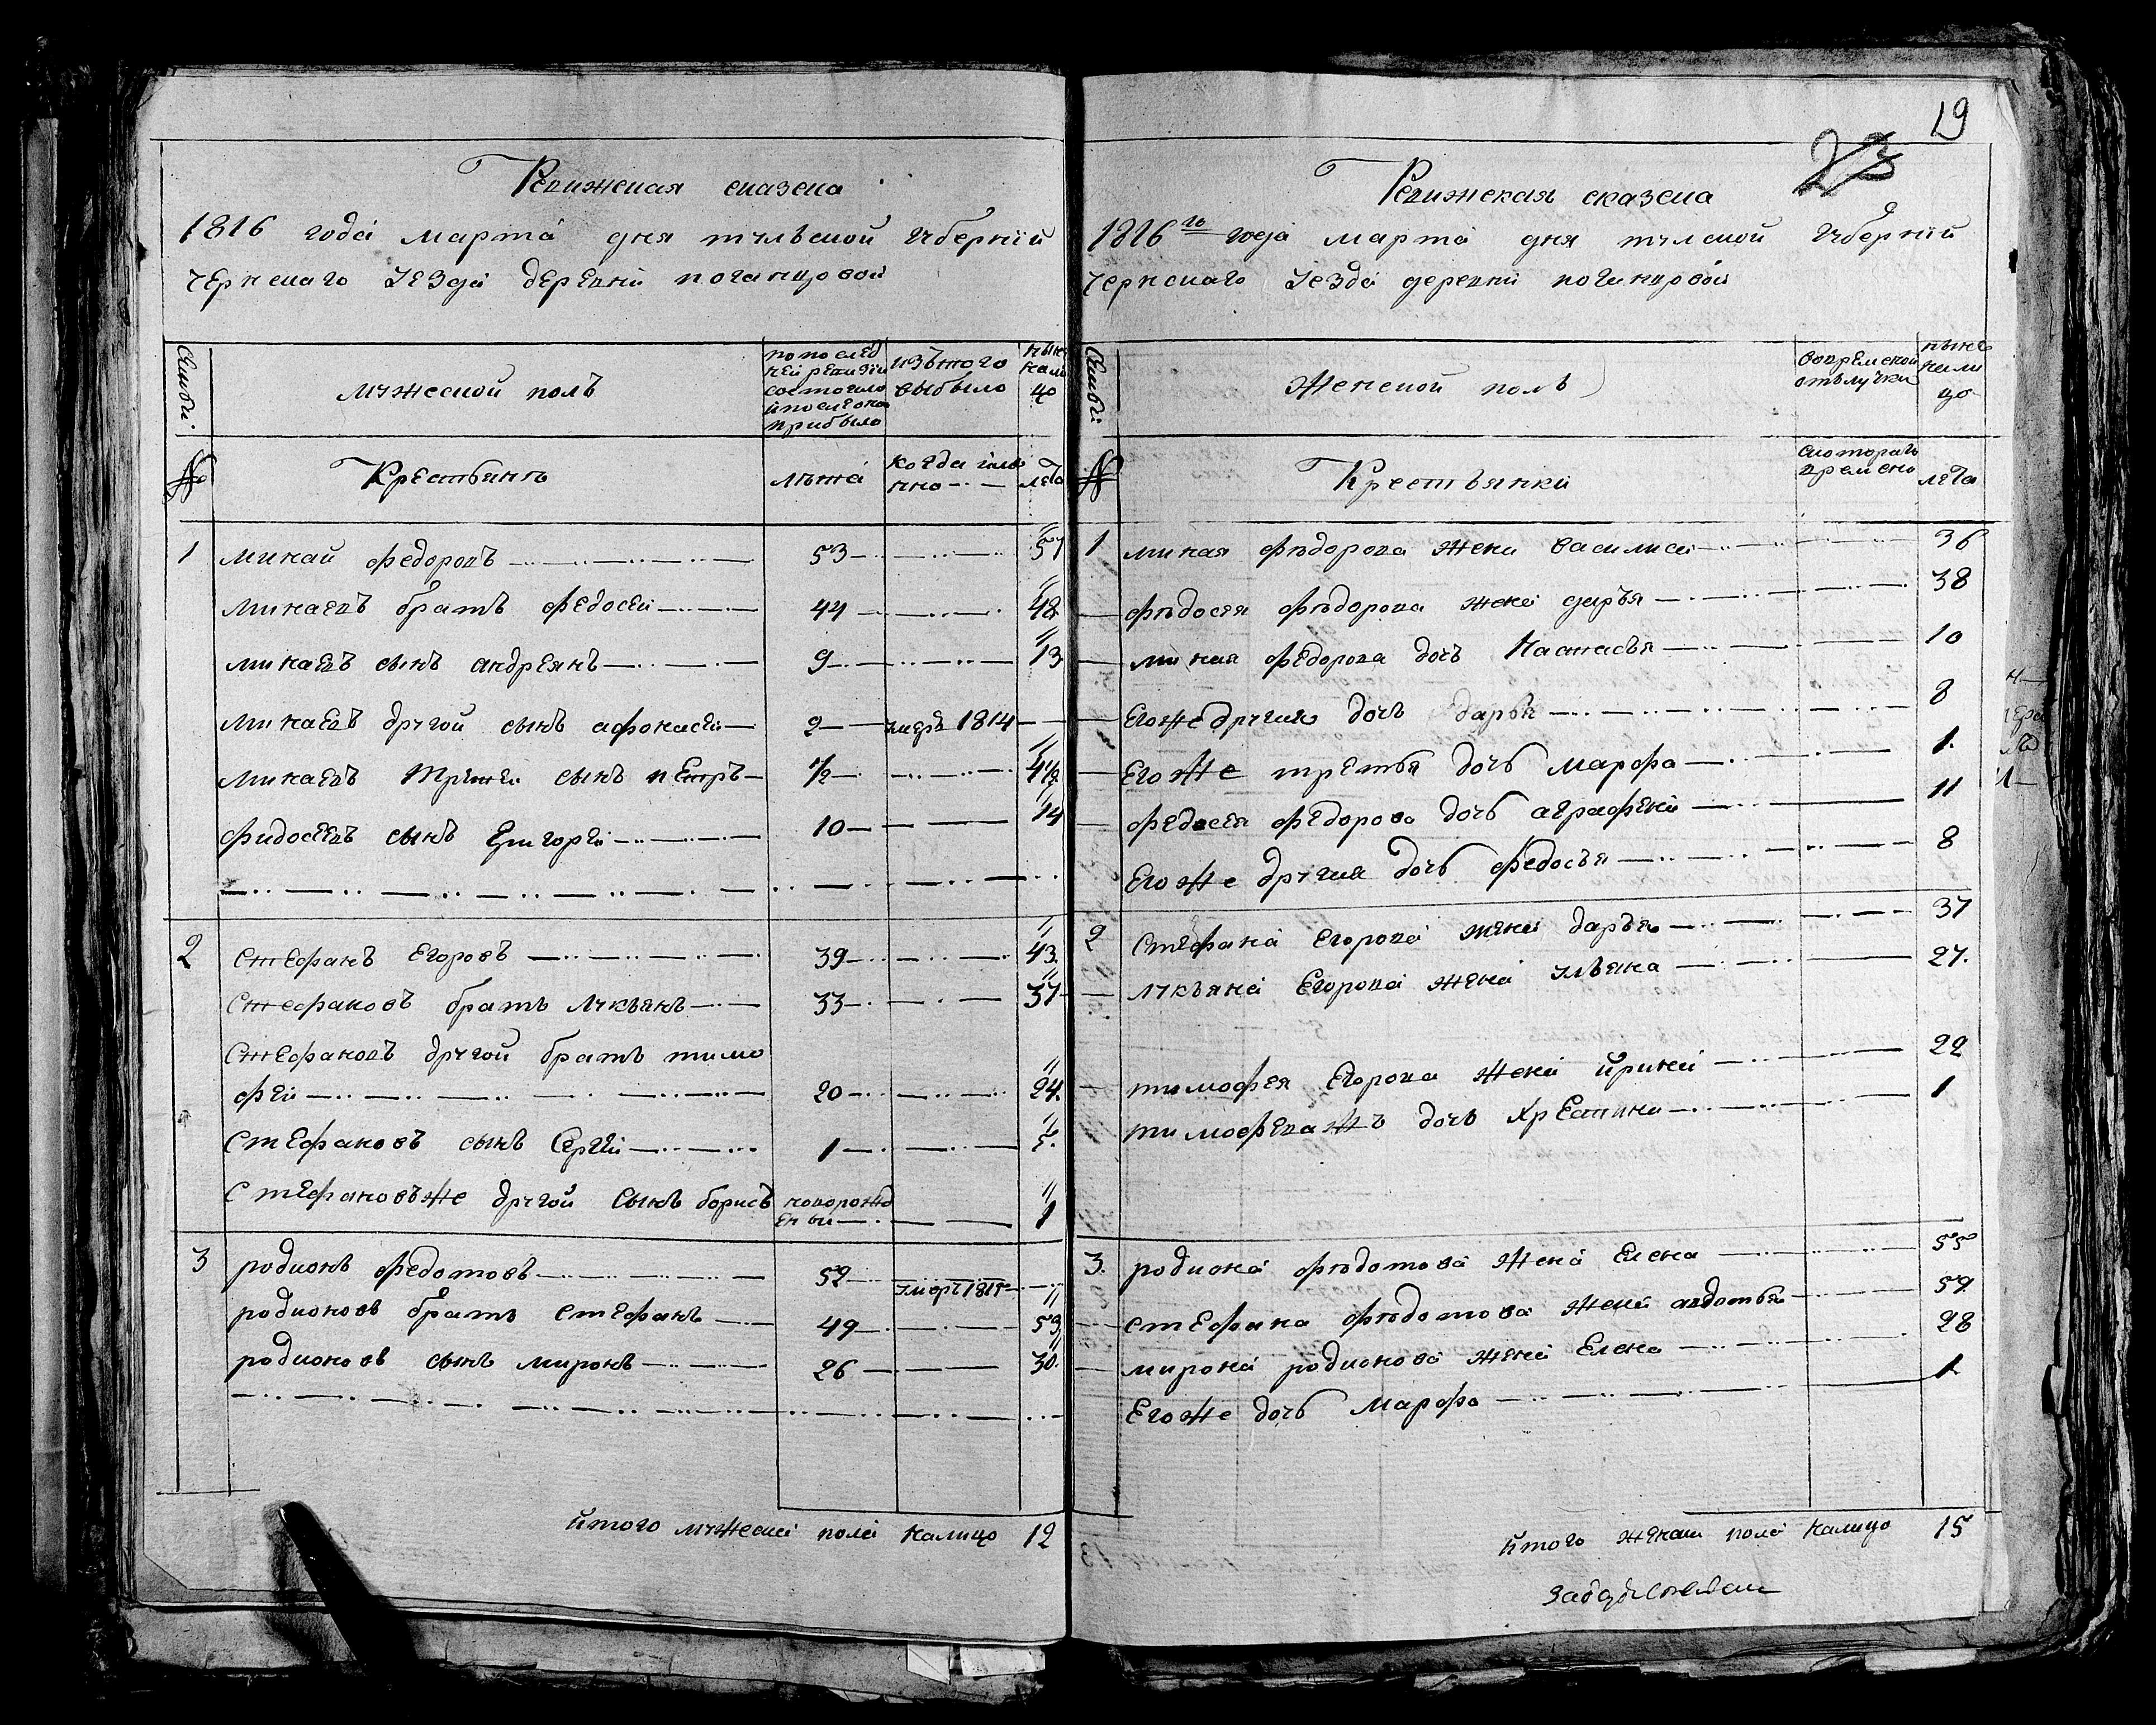 Ревижская сказка
1816 года марта дня тульской губернии
чернскаго уезда деревни поганцовой
Семьи.
мужеской полъ
по послед
ней ревизии
состояло
и после оной
прибыло
изътого
выбыло
ныне
нали
цо
№
Крестьянъ
лѣта
когда имя
нно
лета
1 минай федоровъ 53 57
минаевъ братъ федосей 44 48
минаевъ сынъ андреянъ 9 13
минаевъ другой сынъ афонасей 2 умеръ 1814
минаевъ третей сынъ петръ 1/2 4 1/2
фидосеевъ сынъ григорей 10 14
2 Стефанъ Егоровъ 39 43.
Стефановъ братъ лукьянъ 33 37
Стефановъ другой братъ тимо
фей 20 24.
Стефановъ сынъ Сергей 1 5.
Стефановъже другой сынъ борисъ новорожд
ены 1
3 родионъ федотовъ 52 умеръ 1815
родионовъ братъ стефанъ 49 53
родионовъ сынъ миронъ 26 30.
итого мужеска пола налицо 12
19
23
Ревижская сказка
1816го года марта дня тулской губернии
чернскаго уезда деревни поганцовой
Семьи.
Женской полъ
вовременой
отълучки
ныне
нали
цо
№
Крестьянки
скоторагъ
времени
лета
1 миная фѣдорова жена василиса 36
фѣдосея фѣдорова жена даръя 38
миная федорова дочь Настасья 10
Егоже другия дочь дарья 8
Егоже третья дочь марфа 1.
федосея федорова дочь аграфена 11
Егоже другия дочь федосья 8
2 стефана Егорова жена даръя 37
лукьяна Егорова жена ульяна 27.
тимофея Егорова жена ирина 22
тимофеважъ дочь Хрестина 1
3. родиона фѣдотова жена Елена 55
стефана фѣдотова жена авдотья 57
мирона родионова жена Елена 28
Егоже дочь марфа 1
итого женска пола налицо 15